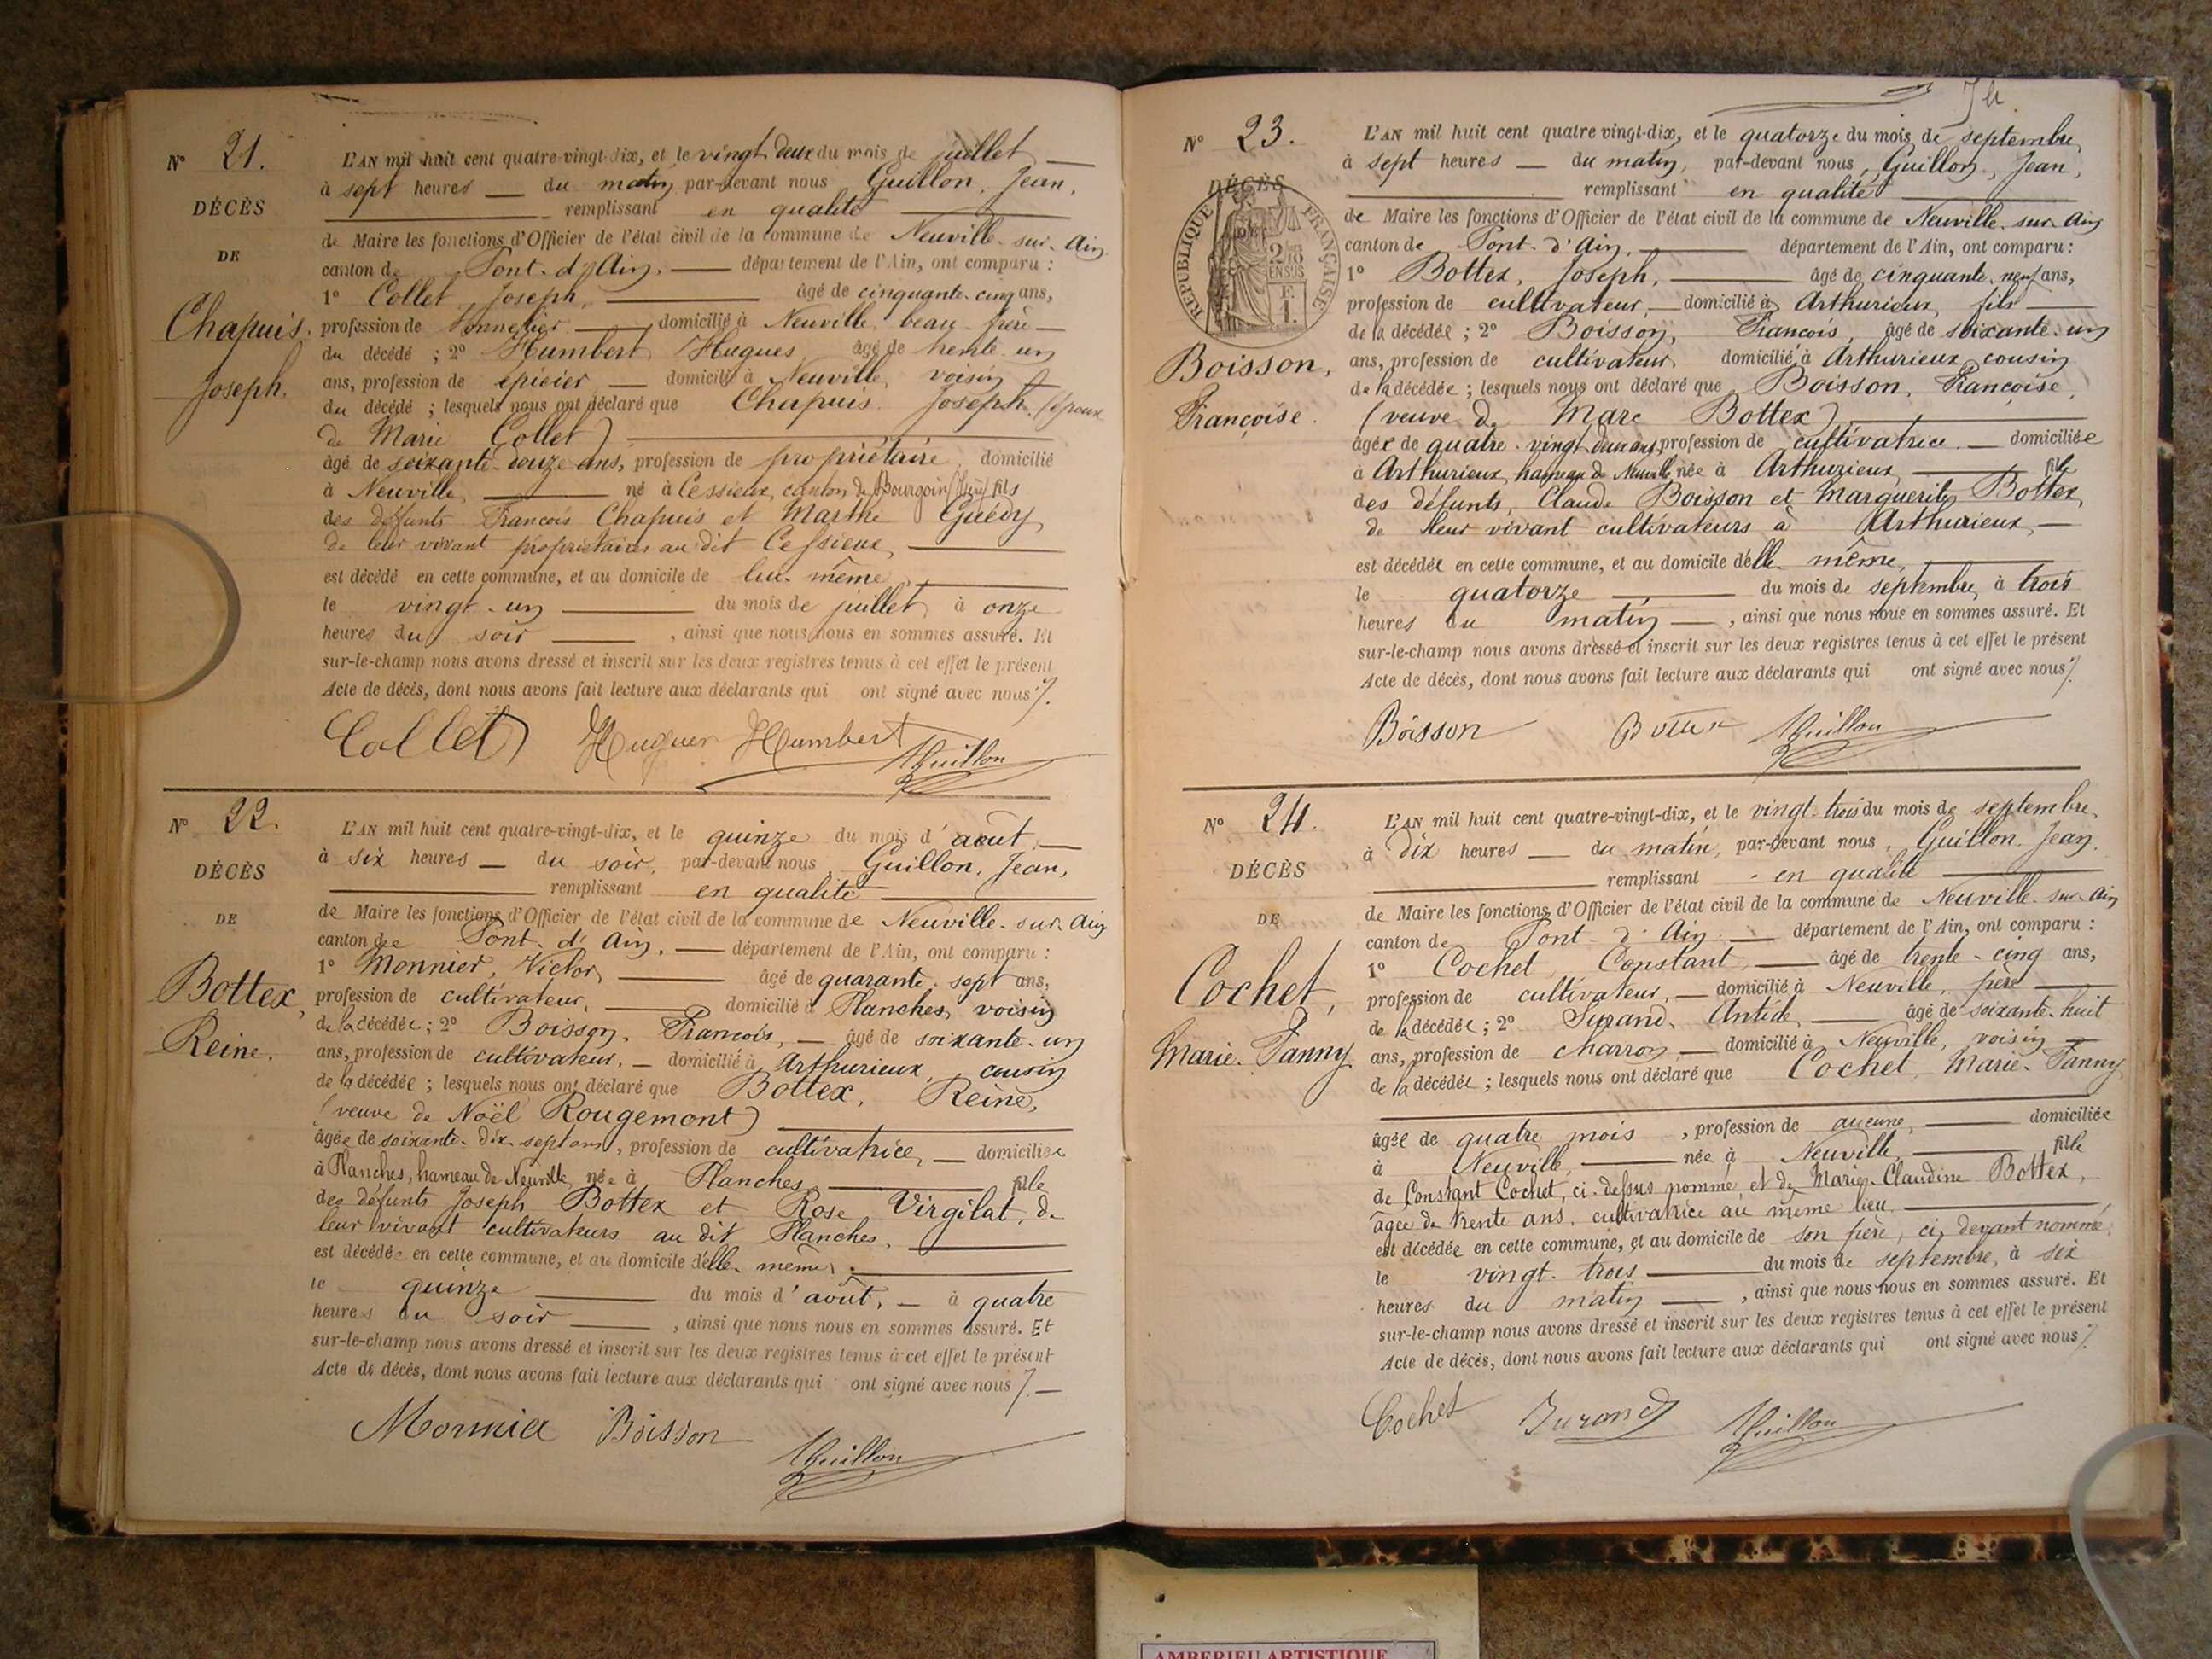 N° 21.
DÉCÈS
DE
Chapuis.
Joseph.
L'AN mil huit cent quatre-vingt-dix, et le vingt deux du mois de juillet
à sept heures du matin par-devant nous Guillon, Jean,
remplissant en qualité
de Maire les fonctions d'Officier de l'état civil de la commune de Neuville-sur-Ain
canton de Pont-d'Ain, département de l'Ain, ont comparu :
1° Collet, Joseph, âgé de cinquante-cinq ans,
profession de tonnelier domicilié à Neuville, beau-frère
du décédé ; 2° Humbert, Hugues, âgé de trente un
ans, profession de épicier domicilié à Neuville, voisin
du décédé ; lesquels nous ont déclaré que Chapuis Joseph, (époux
de Marie Collet)
âgé de soixante-douze ans, profession de propriétaire, domicilié
à Neuville, né à Cessieux, canton de Bourgoin (Isère) fils
des défunts François Chapuis et Marthe Guédy,
de leur vivant propriétaires au dit Cessieux,
est décédé en cette commune, et au domicile de lui-même,
le vingt-un du mois de juillet, à onze
heures du soir, ainsi que nous nous en sommes assuré. Et
sur-le-champ nous avons dressé et inscrit sur les deux registres tenus à cet effet le présent
Acte de décès, dont nous avons fait lecture aux déclarants qui ont signé avec nous
Collet Hugues Humbert JGuillon
N° 22.
DÉCÈS
DE
Bottex,
Reine.
L'AN mil huit cent quatre-vingt-dix, et le quinze du mois d'août,
à six heures du soir, par-devant nous Guillon, Jean,
remplissant en qualité
de Maire les fonctions d'Officier de l'état civil de la commune de Neuville-sur-Ain
canton de Pont-d'Ain, département de l'Ain, ont comparu :
1° Monnier, Victor, âgé de quarante-sept ans,
profession de cultivateur, domicilié à Planches, voisin
de la décédée ; 2° Boisson, François, âgé de soixante-un
ans, profession de cultivateur, domicilié à Arthurieux, cousin
de la décédée ; lesquels nous ont déclaré que Bottex, Reine,
(veuve de Noël Rougemont)
âgée de soixante-dix-sept ans, profession de cultivatrice, domiciliée
à Planches, hameau de Neuville, née à Planches, fille
des défunts Joseph Bottex et Rose Virgilat, de
leur vivant cultivateurs au dit Planches,
est décédée en cette commune, et au domicile d'elle-même,
le quinze du mois d'août, à quatre
heures du soir, ainsi que nous nous en sommes assuré. Et
sur-le-champ nous avons dressé et inscrit sur les deux registres tenus à cet effet le présent
Acte de décès, dont nous avons fait lecture aux déclarants qui ont signé avec nous
Monnier Boisson JGuillon
N° 23.
DÉCÈS
DE
RÉPUBLIQUE FRANÇAISE
2/10 EN SUS
Boisson,
Françoise.
L'AN mil huit cent quatre vingt-dix, et le quatorze du mois de septembre,
à sept heures du matin, par-devant nous, Guillon, Jean,
remplissant en qualité
de Maire les fonctions d'Officier de l'état civil de la commune de Neuville-sur-Ain
canton de Pont-d'Ain, département de l'Ain, ont comparu :
1° Bottex, Joseph, âgé de cinquante-neuf ans,
profession de cultivateur, domicilié à Arthurieux, fils
de la décédée ; 2° Boisson, François, âgé de soixante-un
ans, profession de cultivateur, domicilié à Arthurieux, cousin
de la décédée ; lesquels nous ont déclaré que Boisson, Françoise,
(veuve de Marc Bottex)
âgée de quatre-vingt-deux ans, profession de cultivatrice, domiciliée
à Arthurieux, hameau de Neuville, née à Arthurieux, fille
des défunts, Claude Boisson et Marguerite Bottex,
de leur vivant cultivateurs à Arthurieux,
est décédée en cette commune, et au domicile d'elle-même,
le quatorze du mois de septembre, à trois
heures du matin, ainsi que nous nous en sommes assuré. Et
sur-le-champ nous avons dressé et inscrit sur les deux registres tenus à cet effet le présent
Acte de décès, dont nous avons fait lecture aux déclarants qui ont signé avec nous
Boisson Bottex JGuillon
N° 24.
DÉCÈS
DE
Cochet,
Marie-Fanny
L'AN mil huit cent quatre-vingt-dix, et le vingt-trois du mois de septembre,
à dix heures du matin, par-devant nous, Guillon, Jean,
remplissant en qualité
de Maire les fonctions d'Officier de l'état civil de la commune de Neuville-sur-Ain
canton de Pont-d'Ain département de l'Ain, ont comparu :
1° Cochet, Constant, âgé de trente-cinq ans,
profession de cultivateur, domicilié à Neuville, père
de la décédée ; 2° Jurand, Antide, âgé de soixante-huit
ans, profession de charron, domicilié à Neuville, voisin
de la décédée ; lesquels nous ont déclaré que Cochet, Marie-Fanny
âgée de quatre mois, profession de aucune, domiciliée
à Neuville, née à Neuville, fille
de Constant Cochet, ci-dessus nommé, et de Marie-Claudine Bottex,
âgée de trente ans, cultivatrice au même lieu,
est décédée en cette commune, et au domicile de son père, ci-devant nommé,
le vingt-trois du mois de septembre, à six
heures du matin, ainsi que nous nous en sommes assuré. Et
sur-le-champ nous avons dressé et inscrit sur les deux registres tenus à cet effet le présent
Acte de décès, dont nous avons fait lecture aux déclarants qui ont signé avec nous
Cochet Jurand JGuillon
AMBERIEU ARTISTIQUE